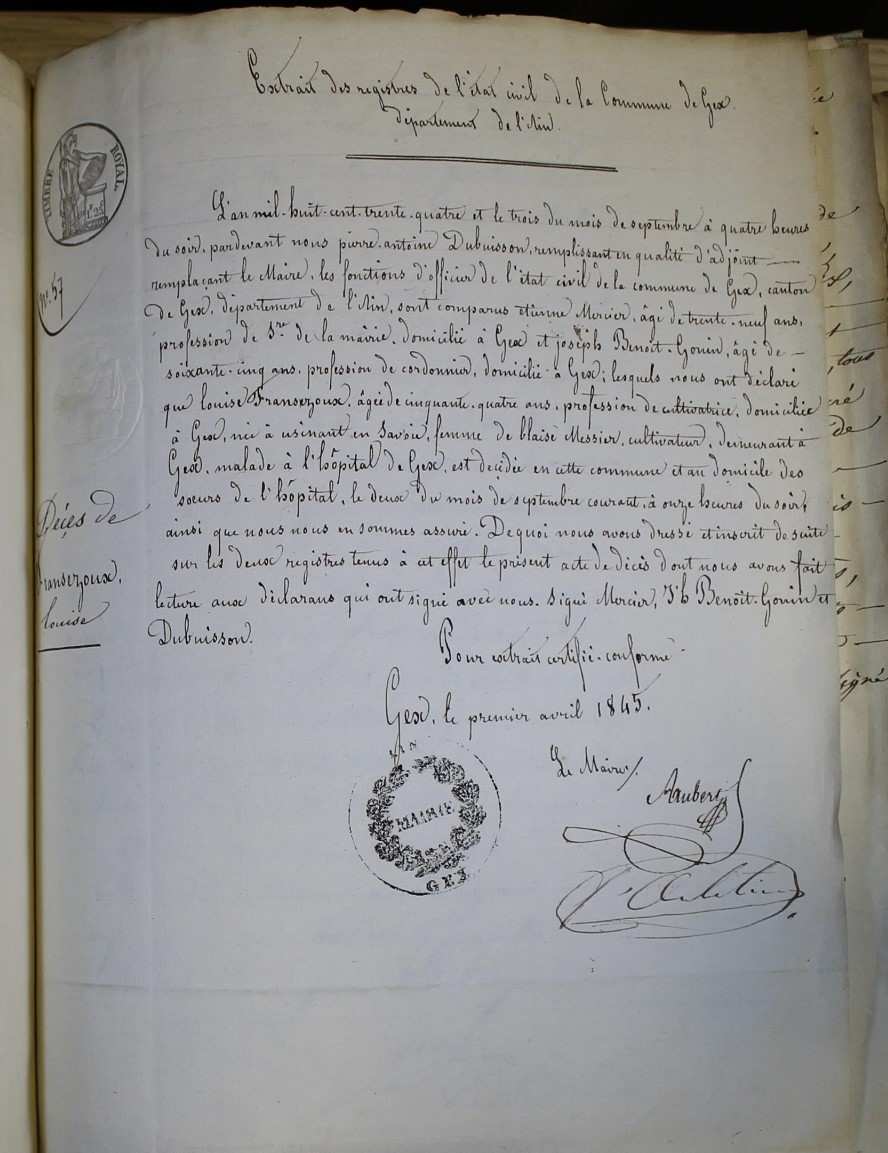 Extrait des registres de l'état civil de la Commune de Gex.
département de l'Ain.
TIMBRE ROYAL
1f 25
N°. 57
L'an mil-huit-cent-trente-quatre et le trois du mois de septembre à quatre heures
du soir, pardevant nous pierre-antoine Dubuisson, remplissant en qualité d'adjoint —
remplaçant le Maire, les fonctions d'officier de l'état civil de la commune de Gex, canton
de Gex, département de l'Ain, sont comparus etienne Mercier, âgé de trente-neuf ans,
profession de Sre de la mairie, domicilié à Gex et joseph Benoit-Gonin, âgé de —
soixante-cinq ans, profession de cordonnier, domicilié à Gex; lesquels nous ont déclaré
que louise Fransezoux, âgée de cinquante-quatre ans, profession de cultivatrice, domiciliée
à Gex, née à usinant en Savoie, femme de blaise Messier, cultivateur, demeurant à
Gex, malade à l'hôpital de Gex, est décédée en cette commune et au domicile des
soeurs de l'hôpital, le deux du mois de septembre courant, à onze heures du soir,
ainsi que nous nous en sommes assuré. De quoi nous avons dressé et inscrit de suite
sur les deux registres tenus à cet effet le présent acte de décès dont nous avons fait
lecture aux déclarans qui ont signé avec nous. Signé Mercier, Jh Benoit-Gonin et
Dubuisson.
Décès de
Fransezoux,
louise
Pour extrait certifié-conforme
Gex, le premier avril 1845.
Le Maire,
MAIRIE
GEX